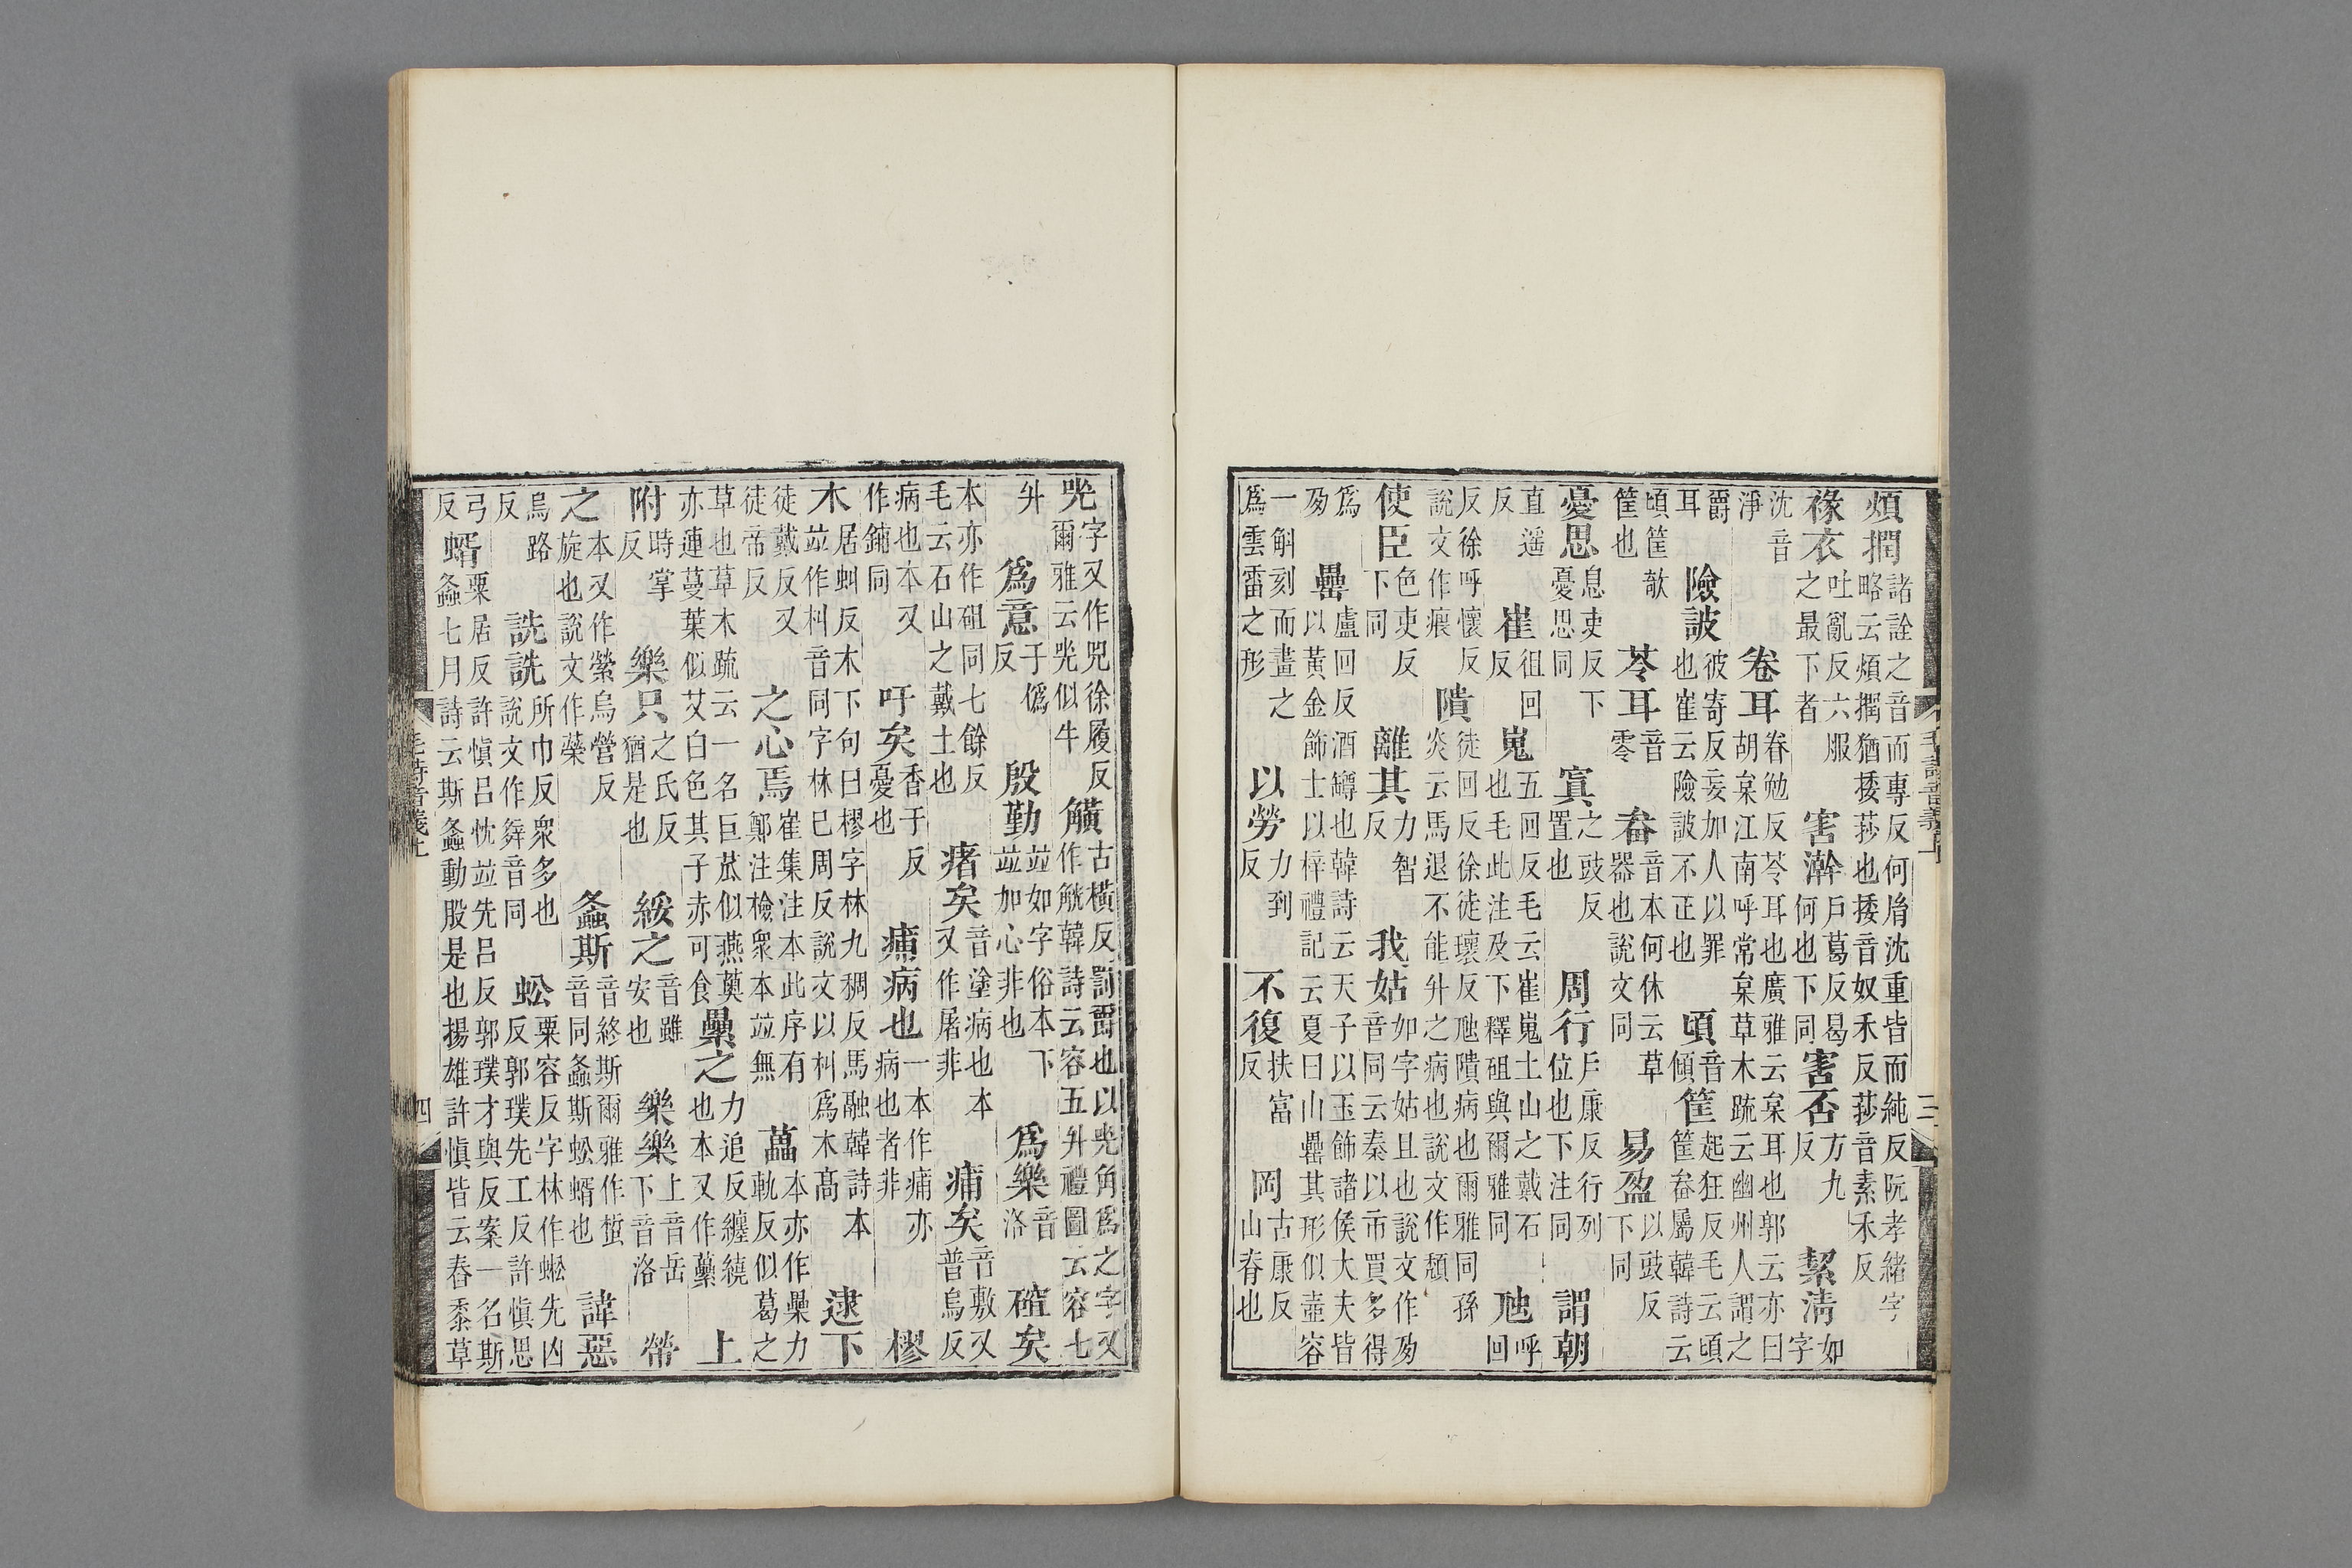 煩撋諸詮之音而專反何胤沈重皆而純反阮孝緒字略云煩撋猶捼莎也捼音奴禾反莎音素禾反
褖衣吐亂反六服之最下者害澣戶葛反曷何也下同害否方九反絜清如字
沈音淨卷耳眷勉反苓耳也廣雅云枲耳也郭云亦曰胡枲江南呼常枲草木疏云幽州人謂之
爵耳險詖彼寄反妄加人以罪也崔云險詖不正也頃音傾筐起狂反毛云頃筐畚屬韓詩云
頃筐欹筐也苓耳音零畚音本何休云草器也說文同易盈以豉反下同
憂思息吏反下憂思同寘之豉反置也周行戶康反行列位也下注同謂朝
直遥反崔徂回反嵬五回反毛云崔嵬土山之戴石也毛此注及下釋砠與爾雅同虺呼回
反徐呼懷反說文作瘣隤徒回反徐徒壞反虺隤病也爾雅同孫炎云馬退不能升之病也說文作頹
使臣色吏反下同離其力智反我姑如字姑且也說文作夃音同云秦以市買多得
爲夃罍盧回反酒罇也韓詩云天子以玉飾諸侯大夫皆以黃金飾士以梓禮記云夏曰山罍其形似壺容
一斛刻而畫之爲雲雷之形以勞力到反不復扶富反岡古康反山脊也
兕字又作兕徐履反爾雅云兕似牛觵古橫反罰爵也以兕角爲之字又作觥韓詩云容五升禮圖云容七
升爲意于僞反殷勤竝如字俗本下竝加心非也爲樂音洛確矣
本亦作砠同七餘反毛云石山之戴土也瘏矣音塗病也本又作屠非痡矣音敷又普烏反
病也本又作鋪同吁矣香于反憂也痡病也一本作痡亦病也者非樛
木居虯反木下句曰樛字林九稠反馬融韓詩本竝作朻音同字林已周反說文以朻爲木高逮下
徒戴反又徒帝反之心焉崔集注本此序有鄭注檢衆本竝無藟本亦作虆力軌反似葛之
草也草木疏云一名巨苽似燕薁亦連蔓葉似艾白色其子赤可食纍之力追反纏繞也本又作虆上
附時掌反樂只之氏反猶是也綏之音雖安也樂樂上音岳下音洛
之本又作縈烏營反旋也說文作螽斯音終斯爾雅作蜤音同螽斯蚣蝑也諱惡
烏路反詵詵所巾反衆多也說文作辬音同蚣粟容反字林作蜙先凶反郭璞先工反許慎思
弓反蝑粟居反許慎呂忱竝先呂反郭璞才與反案一名斯螽七月詩云斯螽動股是也揚雄許慎皆云舂黍草
毛詩音義上
四
毛詩音義上
三